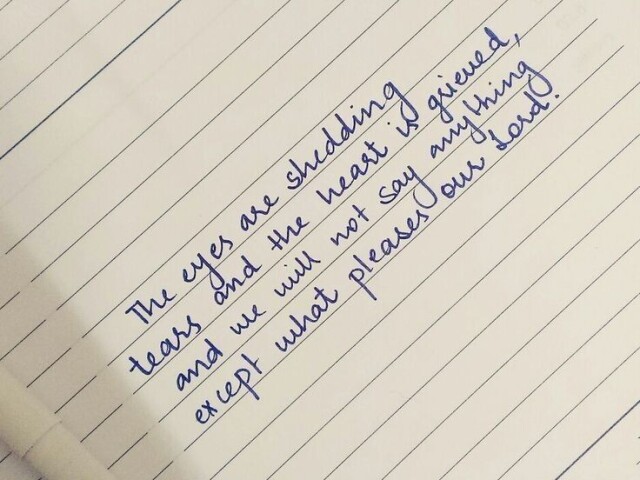 The eyes are shedding
tears and the heart is grieved,
and we will not say anything
except what pleases our Lord.